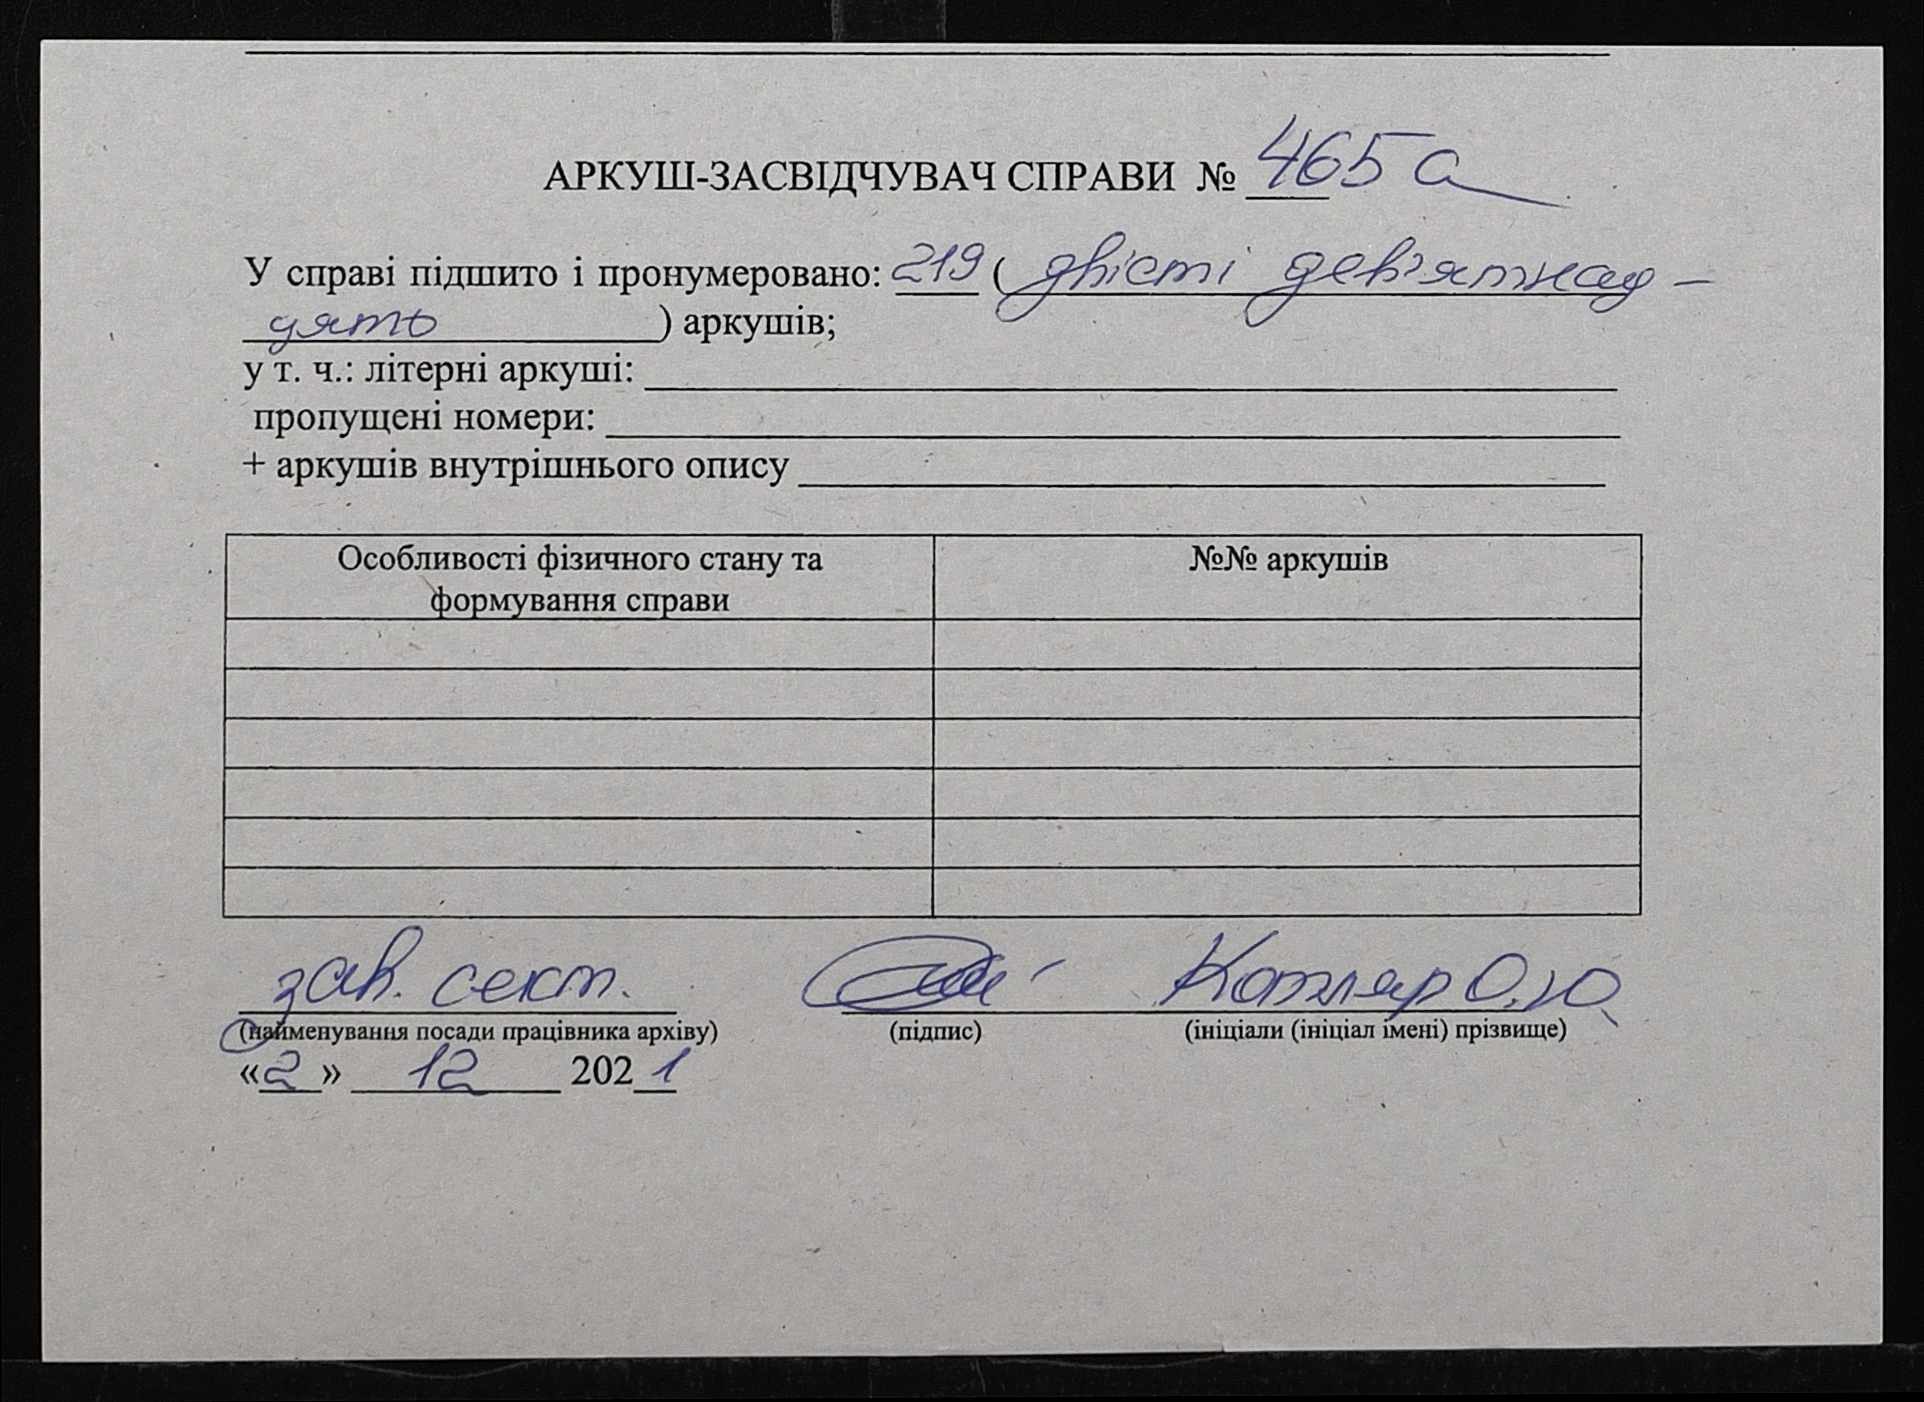 АРКУШ-ЗАСВІДЧУВАЧ СПРАВИ № 465 а
У справі підшито і пронумеровано: 219 ( двісті дев'ятнад -
цять ) аркушів;
у т. ч.: літерні аркуші:
пропущені номери:
+ аркушів внутрішнього опису
Особливості фізичного стану та №№ аркушів
формування справи
зав. сект. Котляр О.Ю.
(найменування посади працівника архіву) (підпис) (ініціали (ініціал імені) прізвище)
«2» 12 2021